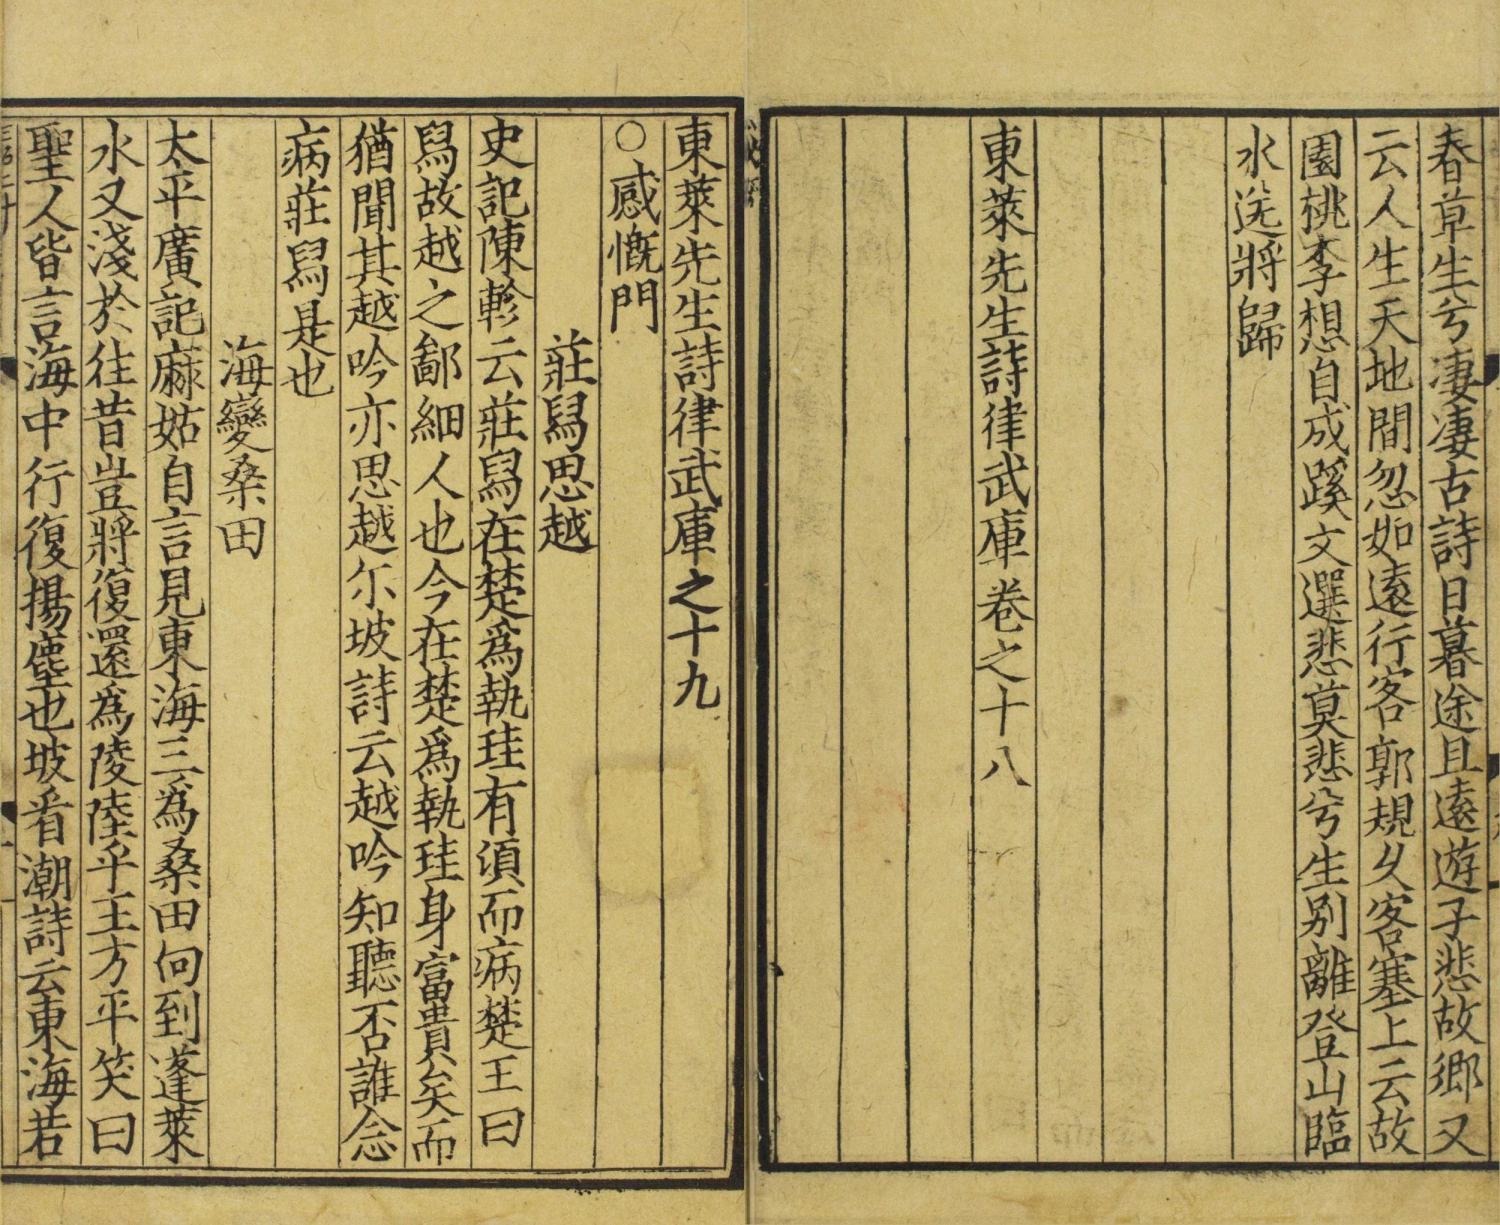 春草生兮凄凄古詩日暮途且逺遊子悲故郷又
云人生天地間忽如逺行客郭規乆客塞上云故
園桃李想自成蹊文選悲莫悲兮生別離登山臨
水送將歸
東萊先生詩律武庫卷之十八
東萊先生詩律武庫之十九
○感慨門
莊舄思越
史記陳軫云莊舄在楚爲執珪有湏而病楚王曰
舄故越之鄙細人也今在楚爲執珪身富貴矣而
猶聞其越吟亦思越尓坡詩云越吟知聽否誰念
病莊舄是也
海變桑田
太平廣記麻姑自言見東海三爲桑田向到蓬萊
水又淺於往昔豈將復還爲陵陸乎王方平笑曰
聖人皆言海中行復揚塵也坡看潮詩云東海若